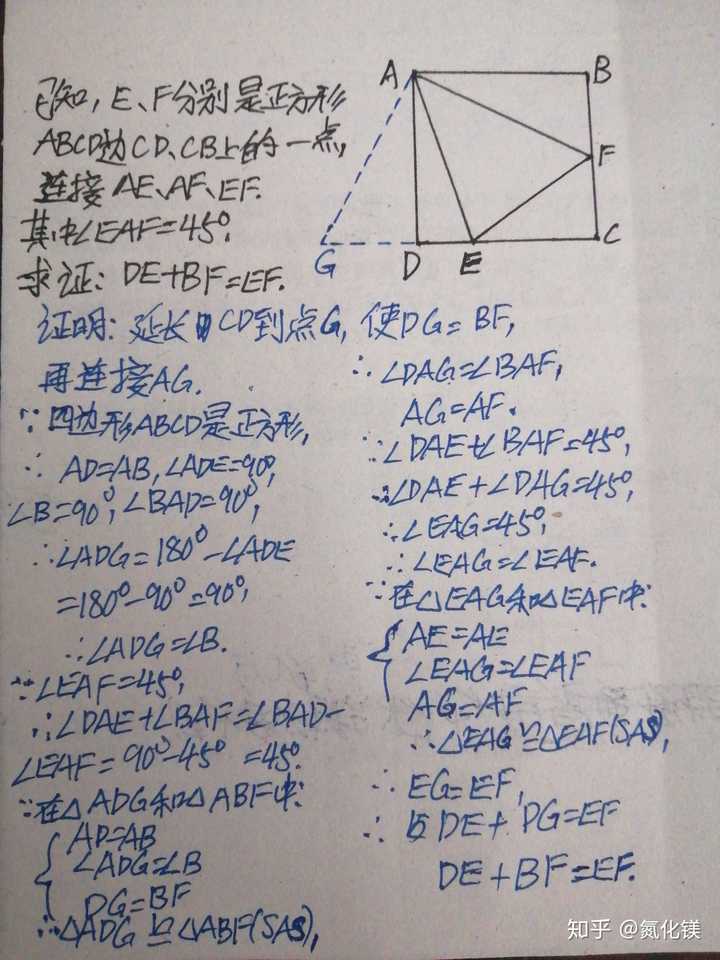 已知,E、F分别是正方形
ABCD边CD、CB上的一点,
连接AE、AF、EF.
其中∠EAF=45°.
求证:DE+BF=EF.
A
B
F
G
D
E
C
证明:延长CD到点G,使DG=BF,
再连接AG.
∵四边形ABCD是正方形,
∴AD=AB,∠ADE=90°,
∠B=90°,∠BAD=90°,
∴∠ADG=180°-∠ADE
=180°-90°=90°,
∴∠ADG=∠B.
∵∠EAF=45°,
∴∠DAE+∠BAF=∠BAD-
∠EAF=90°-45°=45°.
∵在△ADG和△ABF中:
AD=AB
∠ADG=∠B
DG=BF
∴△ADG≌△ABF(SAS),
∴∠DAG=∠BAF,
AG=AF.
∵∠DAE+∠BAF=45°,
∴∠DAE+∠DAG=45°,
∴∠EAG=45°,
∴∠EAG=∠EAF.
∵在△EAG和△EAF中:
AE=AE
∠EAG=∠EAF
AG=AF
∴△EAG≌△EAF(SAS),
∴EG=EF,
∴DE+DG=EF
DE+BF=EF.
知乎 @氮化镁